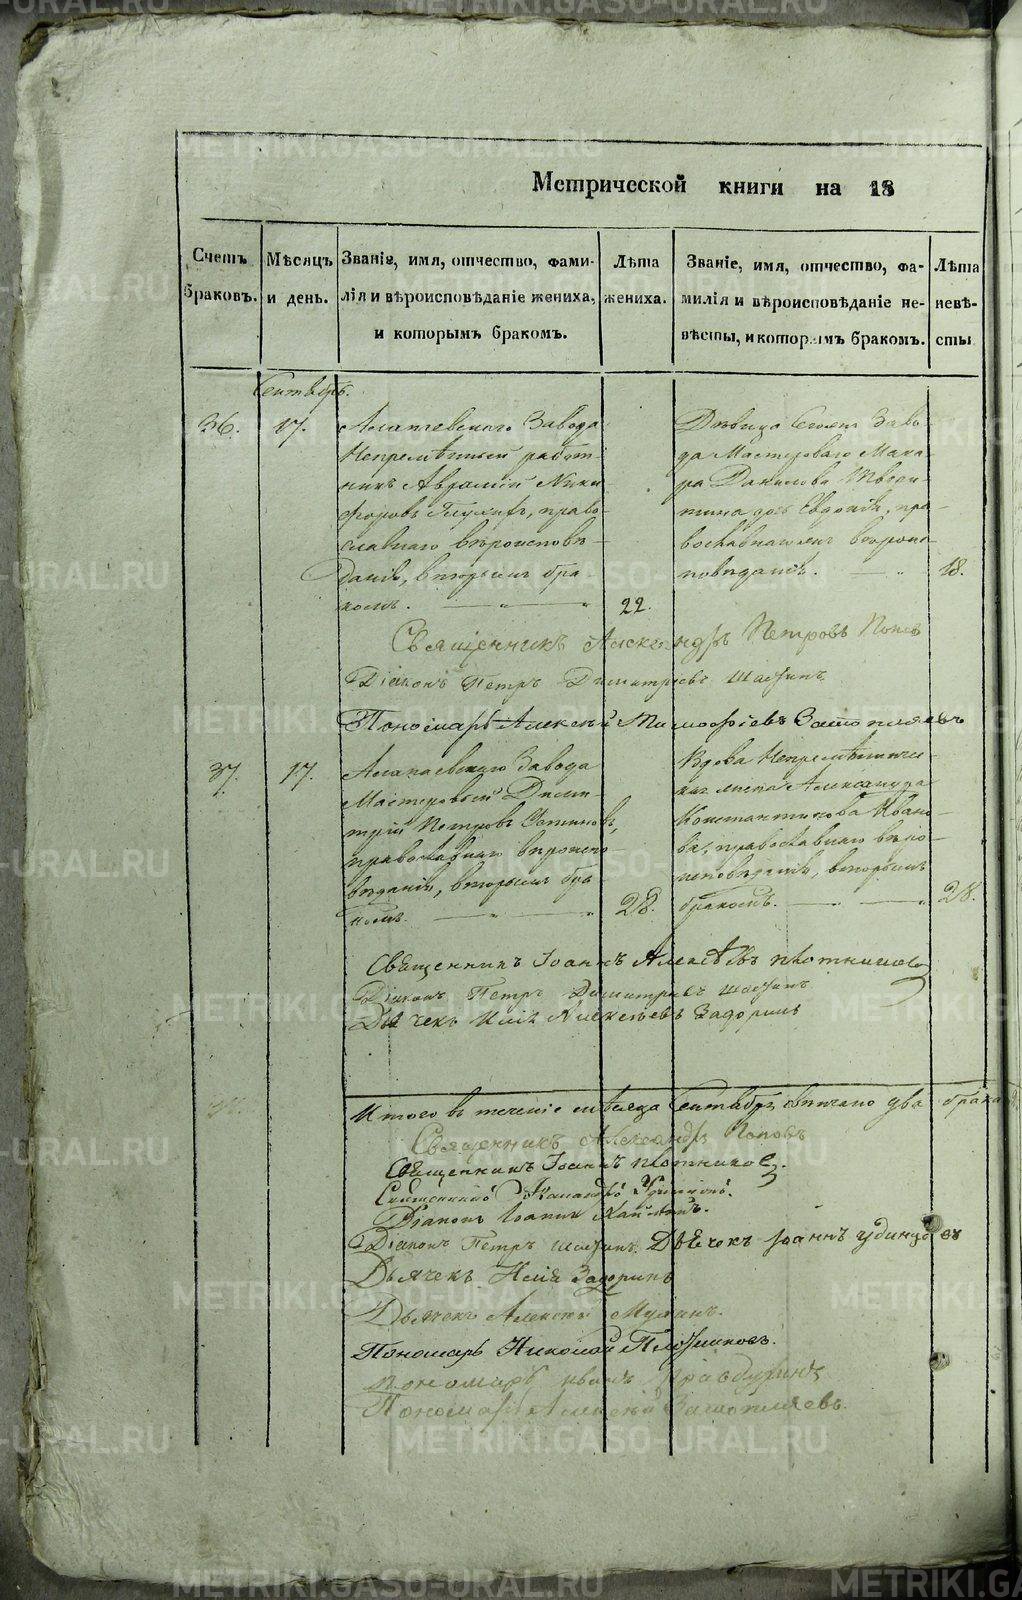 Метрической книги на 18
Счетъ браковъ.
Мѣсяцъ и день.
Званіе, имя, отчество, фами-
лія и вѣроисповѣданіе жениха,
и которымъ бракомъ.
Лѣта
жениха.
Званіе, имя, отчество, фа-
милія и вѣроисповѣданіе не-
вѣсты, и которымъ бракомъ.
Лѣта
невѣ-
сты
Сентябрь.
36.
17.
Алапаевскаго Завода
Непремѣнный работ-
никъ Аврамій Ники
форовъ православнаго вѣроисповѣ-
даніе, вторымъ бра-
комъ.
22.
Дѣвица Заво-
да Мастероваго Мака-
ра Данилова
дочь Евдокія, пра-
вославнаго вѣроис-
повѣданія.
18.
Священникъ Александръ Петровъ Поповъ
Діаконъ Петръ Димитріевъ
Пономарь Алексѣй Тимофѣевъ Затопляевъ
37.
17.
Алапаевскаго Завода
Мастеровый Дими
трій Петровъ Устиновъ,
православнаго вѣроиспо
вѣданія, вторымъ бра
комъ.
28.
Вдова Непремѣннаго
Александра
Константинова Ивано-
ва, православнаго вѣро-
исповѣданія, вторымъ
бракомъ.
28.
Священникъ Іоаннъ Алексѣевъ Плотниковъ
Діаконъ Петръ Димитріевъ
Дьячекъ Илія Алексѣевъ Задоринъ
Итого въ теченіе мѣсяца Сентября вѣнчано два брака
Священникъ Александръ Поповъ
Священникъ Іоаннъ Плотниковъ.
Священникъ
Діаконъ Іоаннъ
Діаконъ Петръ Дьячекъ Іоаннъ Удинцовъ
Дьячекъ Илія Задоринъ
Дьячекъ Алексѣй
Пономарь Николай Плотниковъ.
Пономарь Иванъ
Пономарь Алексѣй Затопляевъ.
METRIKI.GASO-URAL.RU